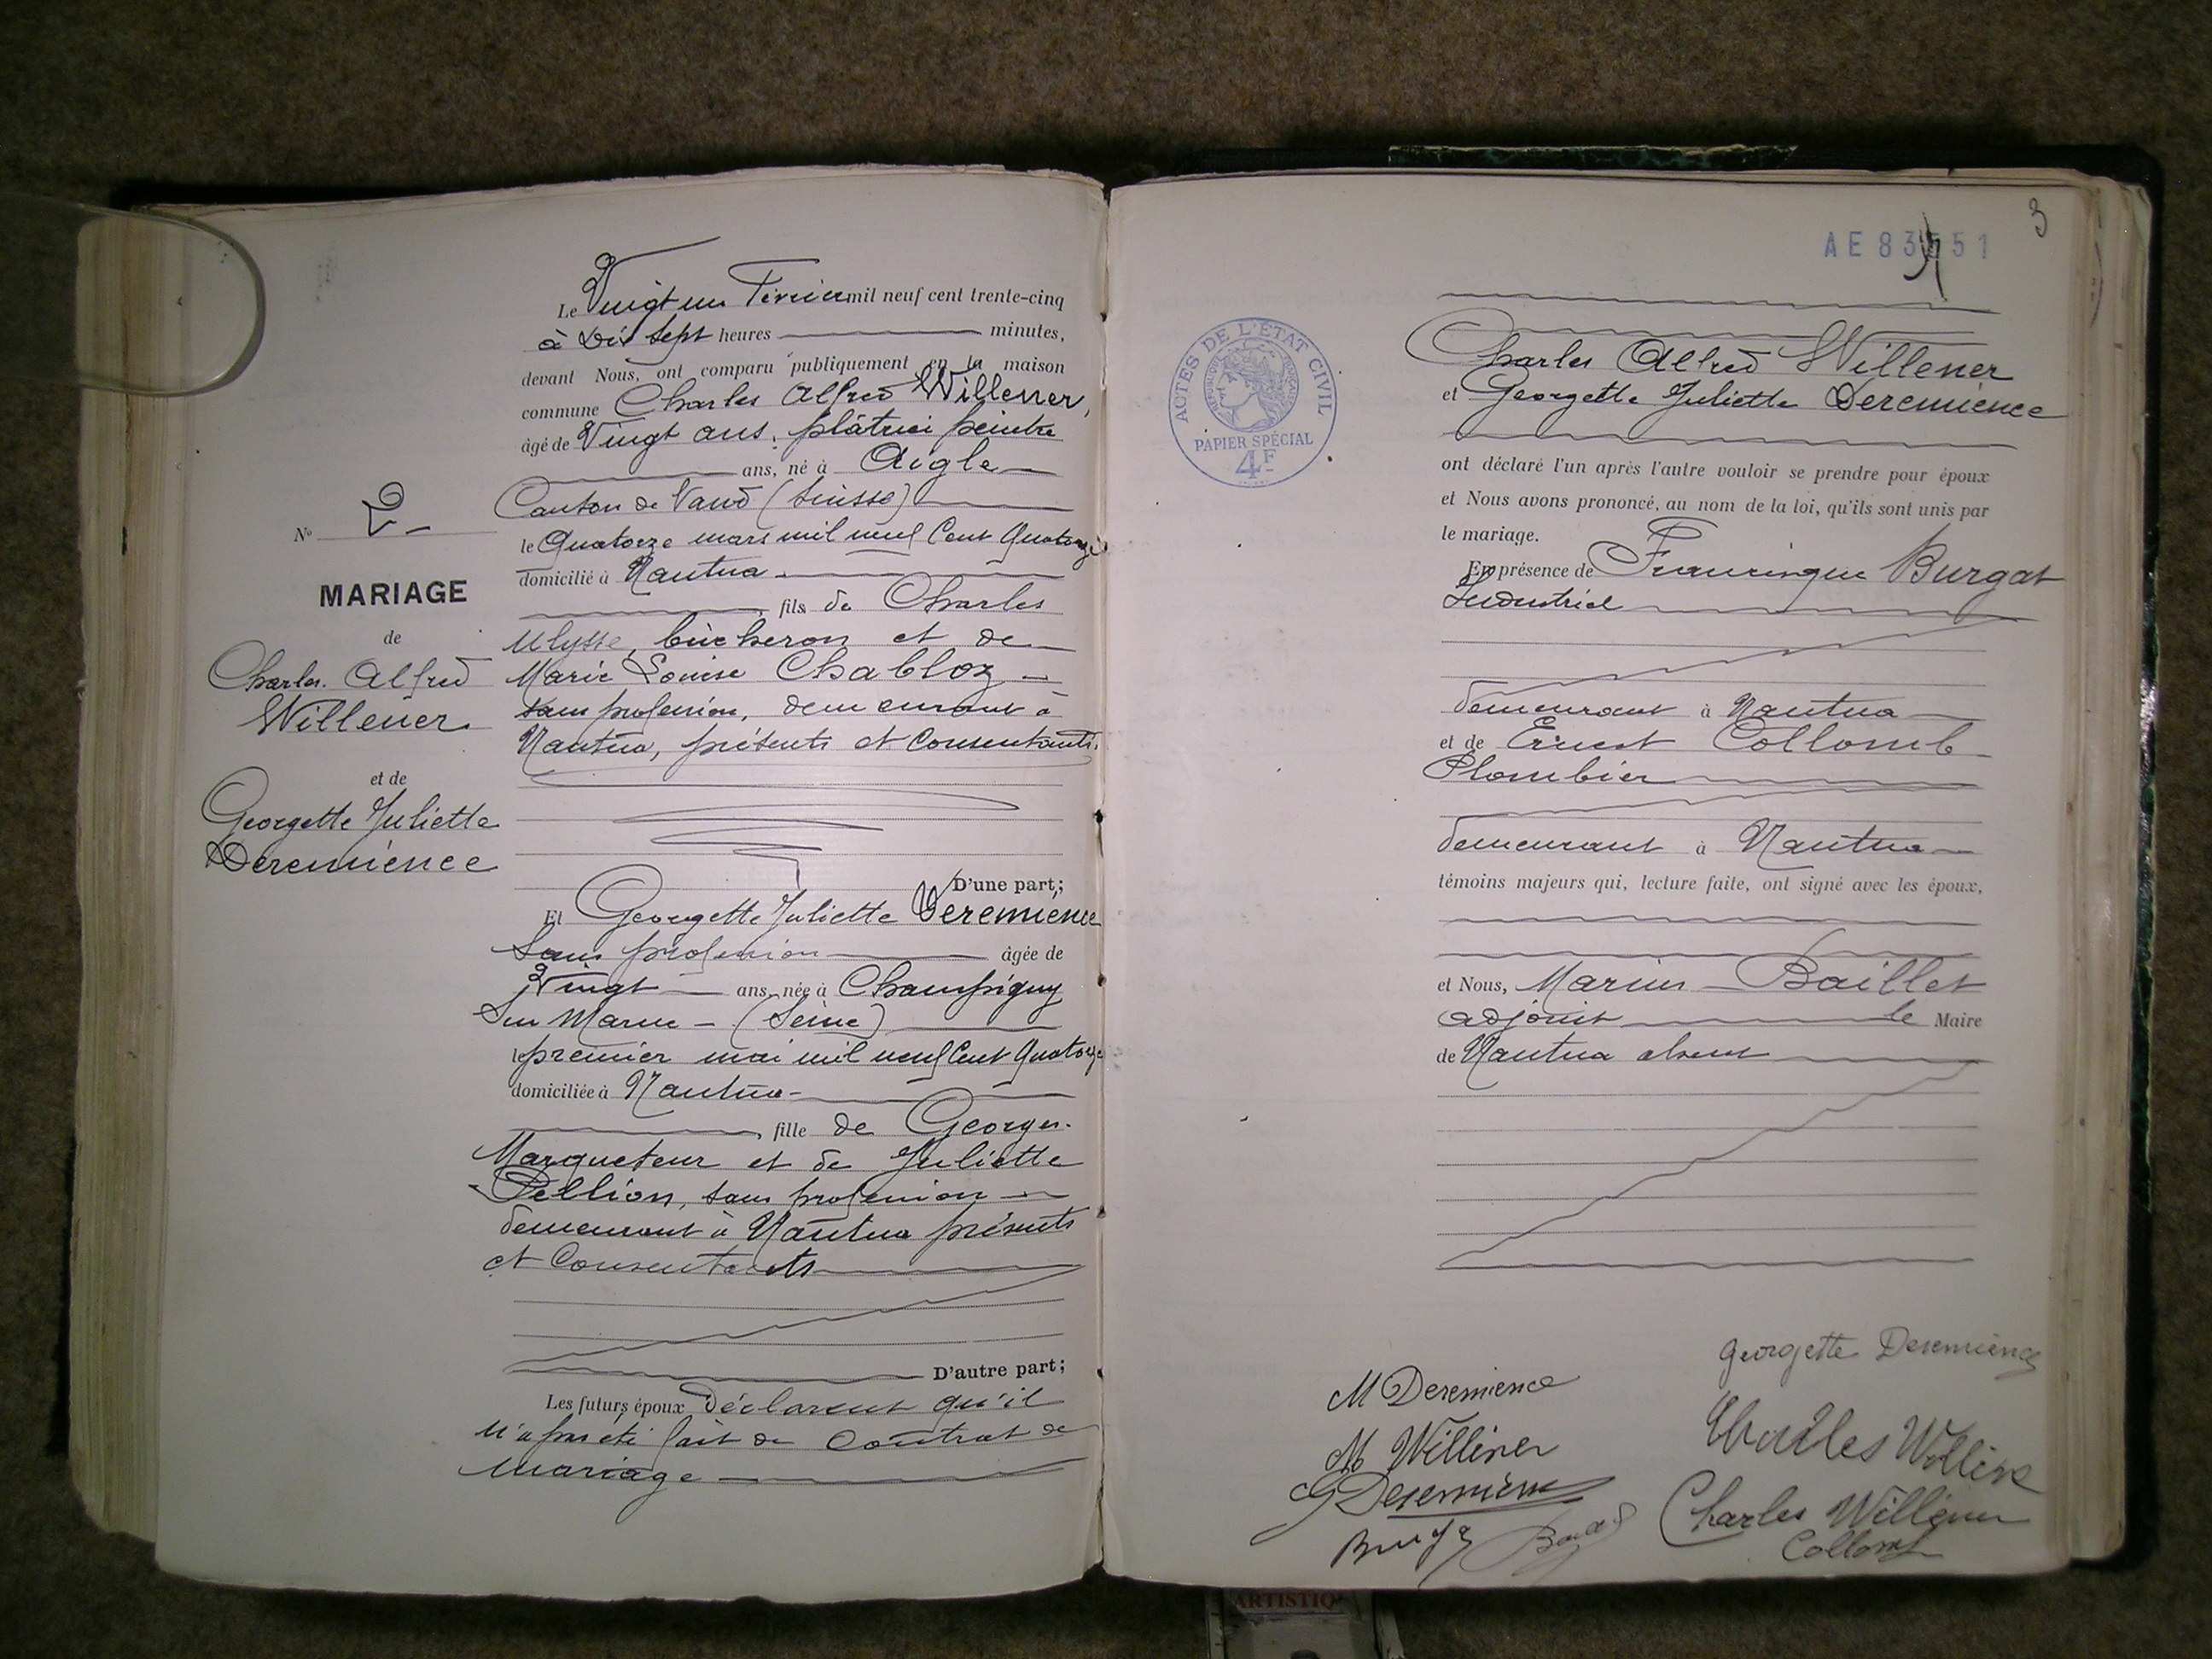 N° 2
MARIAGE
de
Charles Alfred
Willener
et de
Georgette Juliette
Deremience
Le Vingt un Février mil neuf cent trente-cinq
à Dix sept heures minutes,
devant Nous, ont comparu publiquement en la maison
commune Charles Alfred Willener,
âgé de Vingt ans, plâtrier peintre
ans, né à Aigle
Canton de Vaud (Suisse)
le Quatorze mars mil neuf Cent Quatorze
domicilié à Nantua
fils de Charles
Ulysse, bûcheron et de
Marie Louise Chabloz
sans profession, demeurant à
Nantua, présents et Consentants.
D'une part;
Et Georgette Juliette Deremience
Sans profession âgée de
Vingt ans, née à Champigny
Sur Marne - (Seine)
le premier mai mil neuf Cent Quatorze
domiciliée à Nantua
fille de Georges
Marqueteur et de Juliette
Pellion, sans profession
demeurant à Nantua présents
et Consentants
D'autre part;
Les futurs époux Déclarent qu'il
n'a pas été fait de Contrat de
Mariage
3
AE 83551
ACTES DE L'ÉTAT CIVIL
RÉPUBLIQUE FRANÇAISE
PAPIER SPÉCIAL
4F
Charles Alfred Willener
et Georgette Juliette Deremience
ont déclaré l'un après l'autre vouloir se prendre pour époux
et Nous avons prononcé, au nom de la loi, qu'ils sont unis par
le mariage.
En présence de Francisque Burgat
Industriel
demeurant à Nantua
et de Ernest Collomb
Plombier
demeurant à Nantua
témoins majeurs qui, lecture faite, ont signé avec les époux,
et Nous, Marius Baillet
adjoint le Maire
de Nantua absent
Georgette Deremience
M Deremience
M Willener
Charles Willener
G Deremience
Charles Willener
Collomb
ARTISTIQ